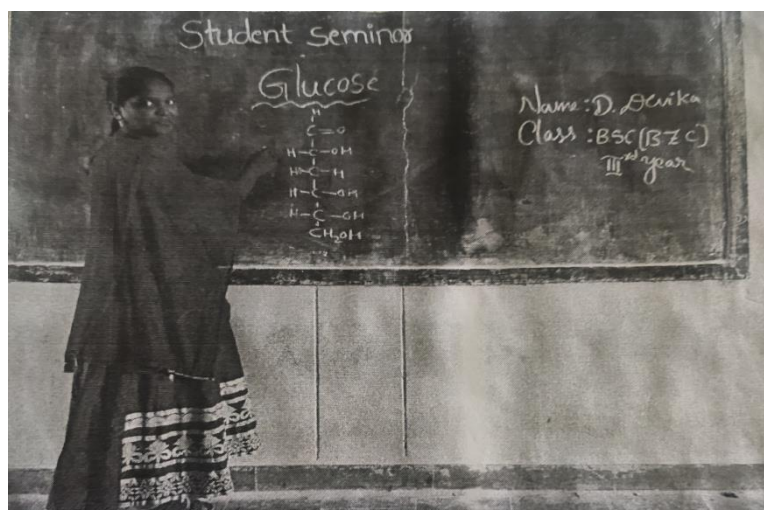 Student seminar
Glucose
H
C=O
H-C-OH
H-C-H
H-C-OH
H-C-OH
CH₂OH
Name: D. Devika
Class: BSC (BZC)
III rd year